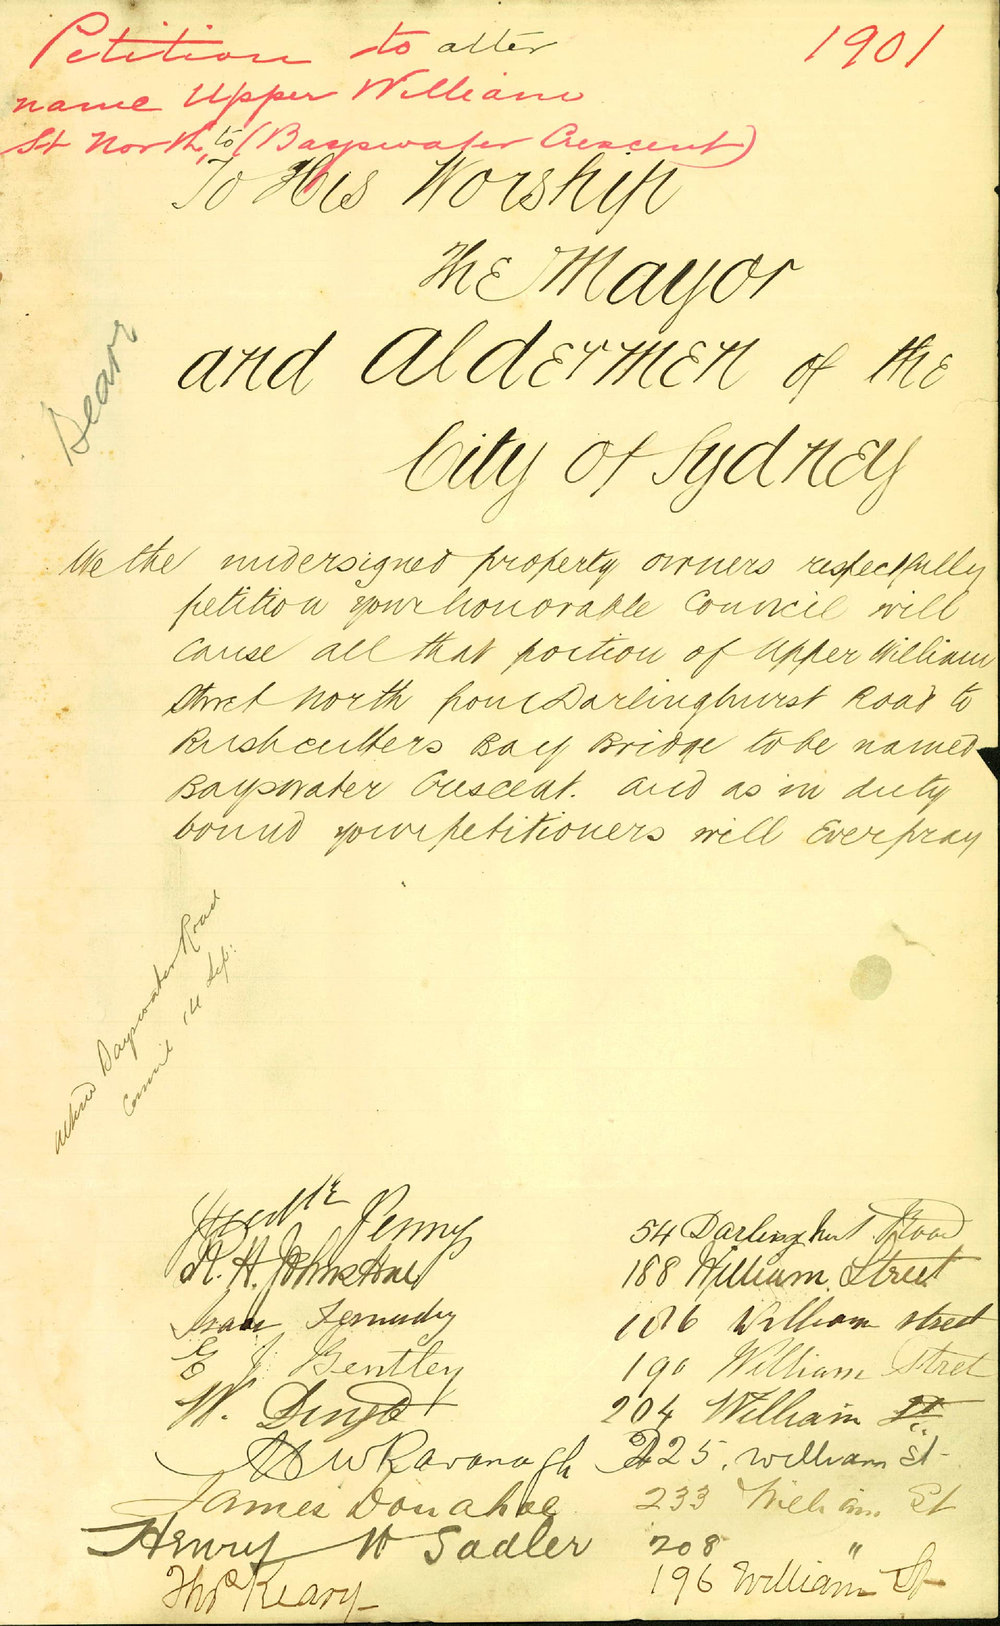 Petition to alter
1901
name Upper William
St North, to (Bayswater Crescent)
To His Worship
The Mayor
and Aldermen of the
City of Sydney
We the undersigned property owners respectfully
petition your honorable Council will
cause all that portion of Upper William
Street North from Darlinghurst Road to
Rushcutters Bay Bridge to be named
Bayswater Crescent. and as in duty
bound your petitioners will Ever pray
Bayswater Road
Council 14 Sep:
Penny 54 Darlinghurst Road
R. H. Johnstone 188 William Street
Isaac William street
E J Bentley 190 William Street
W. 204 William St
W Kavanagh 225. William St
James Donahoe 233 William St
Henry W Sadler 208 "
Thos Keary 196 William St